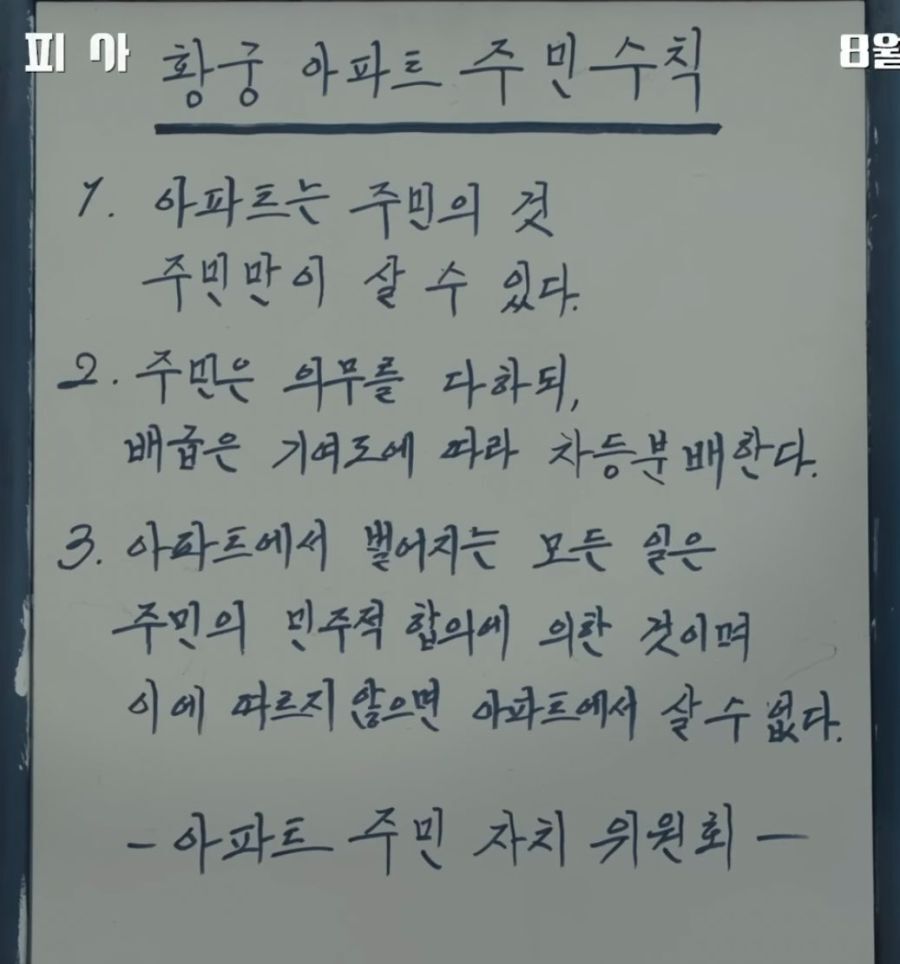 피아
8월
황궁 아파트 주민수칙
1. 아파트는 주민의 것
주민만이 살 수 있다.
2. 주민은 의무를 다하되,
배급은 기여도에 따라 차등분배한다.
3. 아파트에서 벌어지는 모든 일은
주민의 민주적 합의에 의한 것이며
이에 따르지 않으면 아파트에서 살 수 없다.
- 아파트 주민 자치 위원회 -